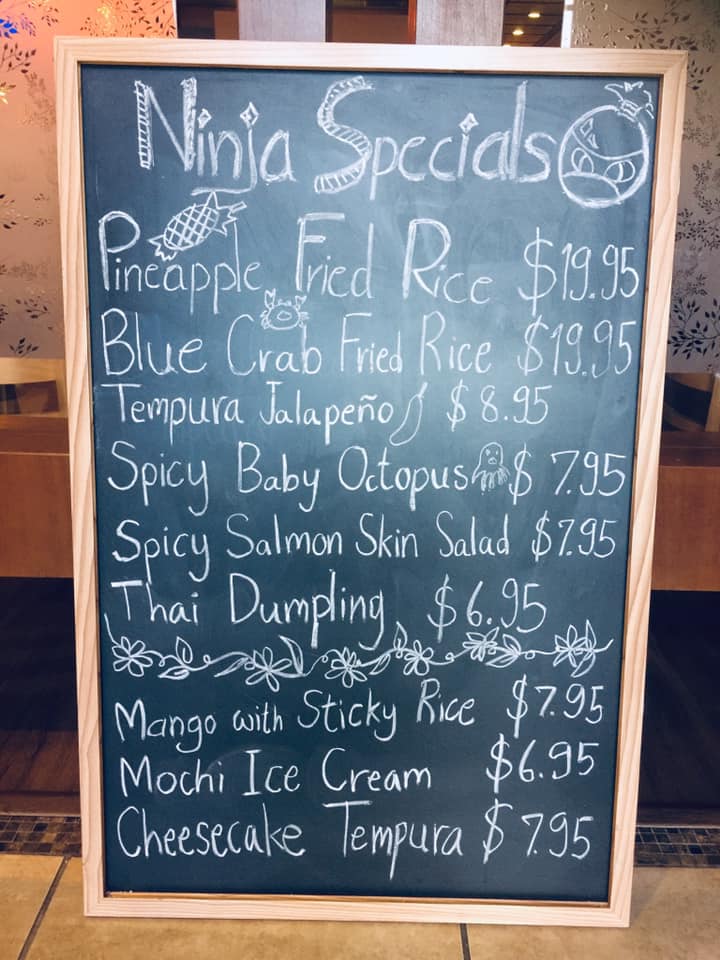 Ninja Specials
Pineapple Fried Rice $19.95
Blue Crab Fried Rice $19.95
Tempura Jalapeño $8.95
Spicy Baby Octopus $7.95
Spicy Salmon Skin Salad $7.95
Thai Dumpling $6.95
Mango with Sticky Rice $7.95
Mochi Ice Cream $6.95
Cheesecake Tempura $7.95